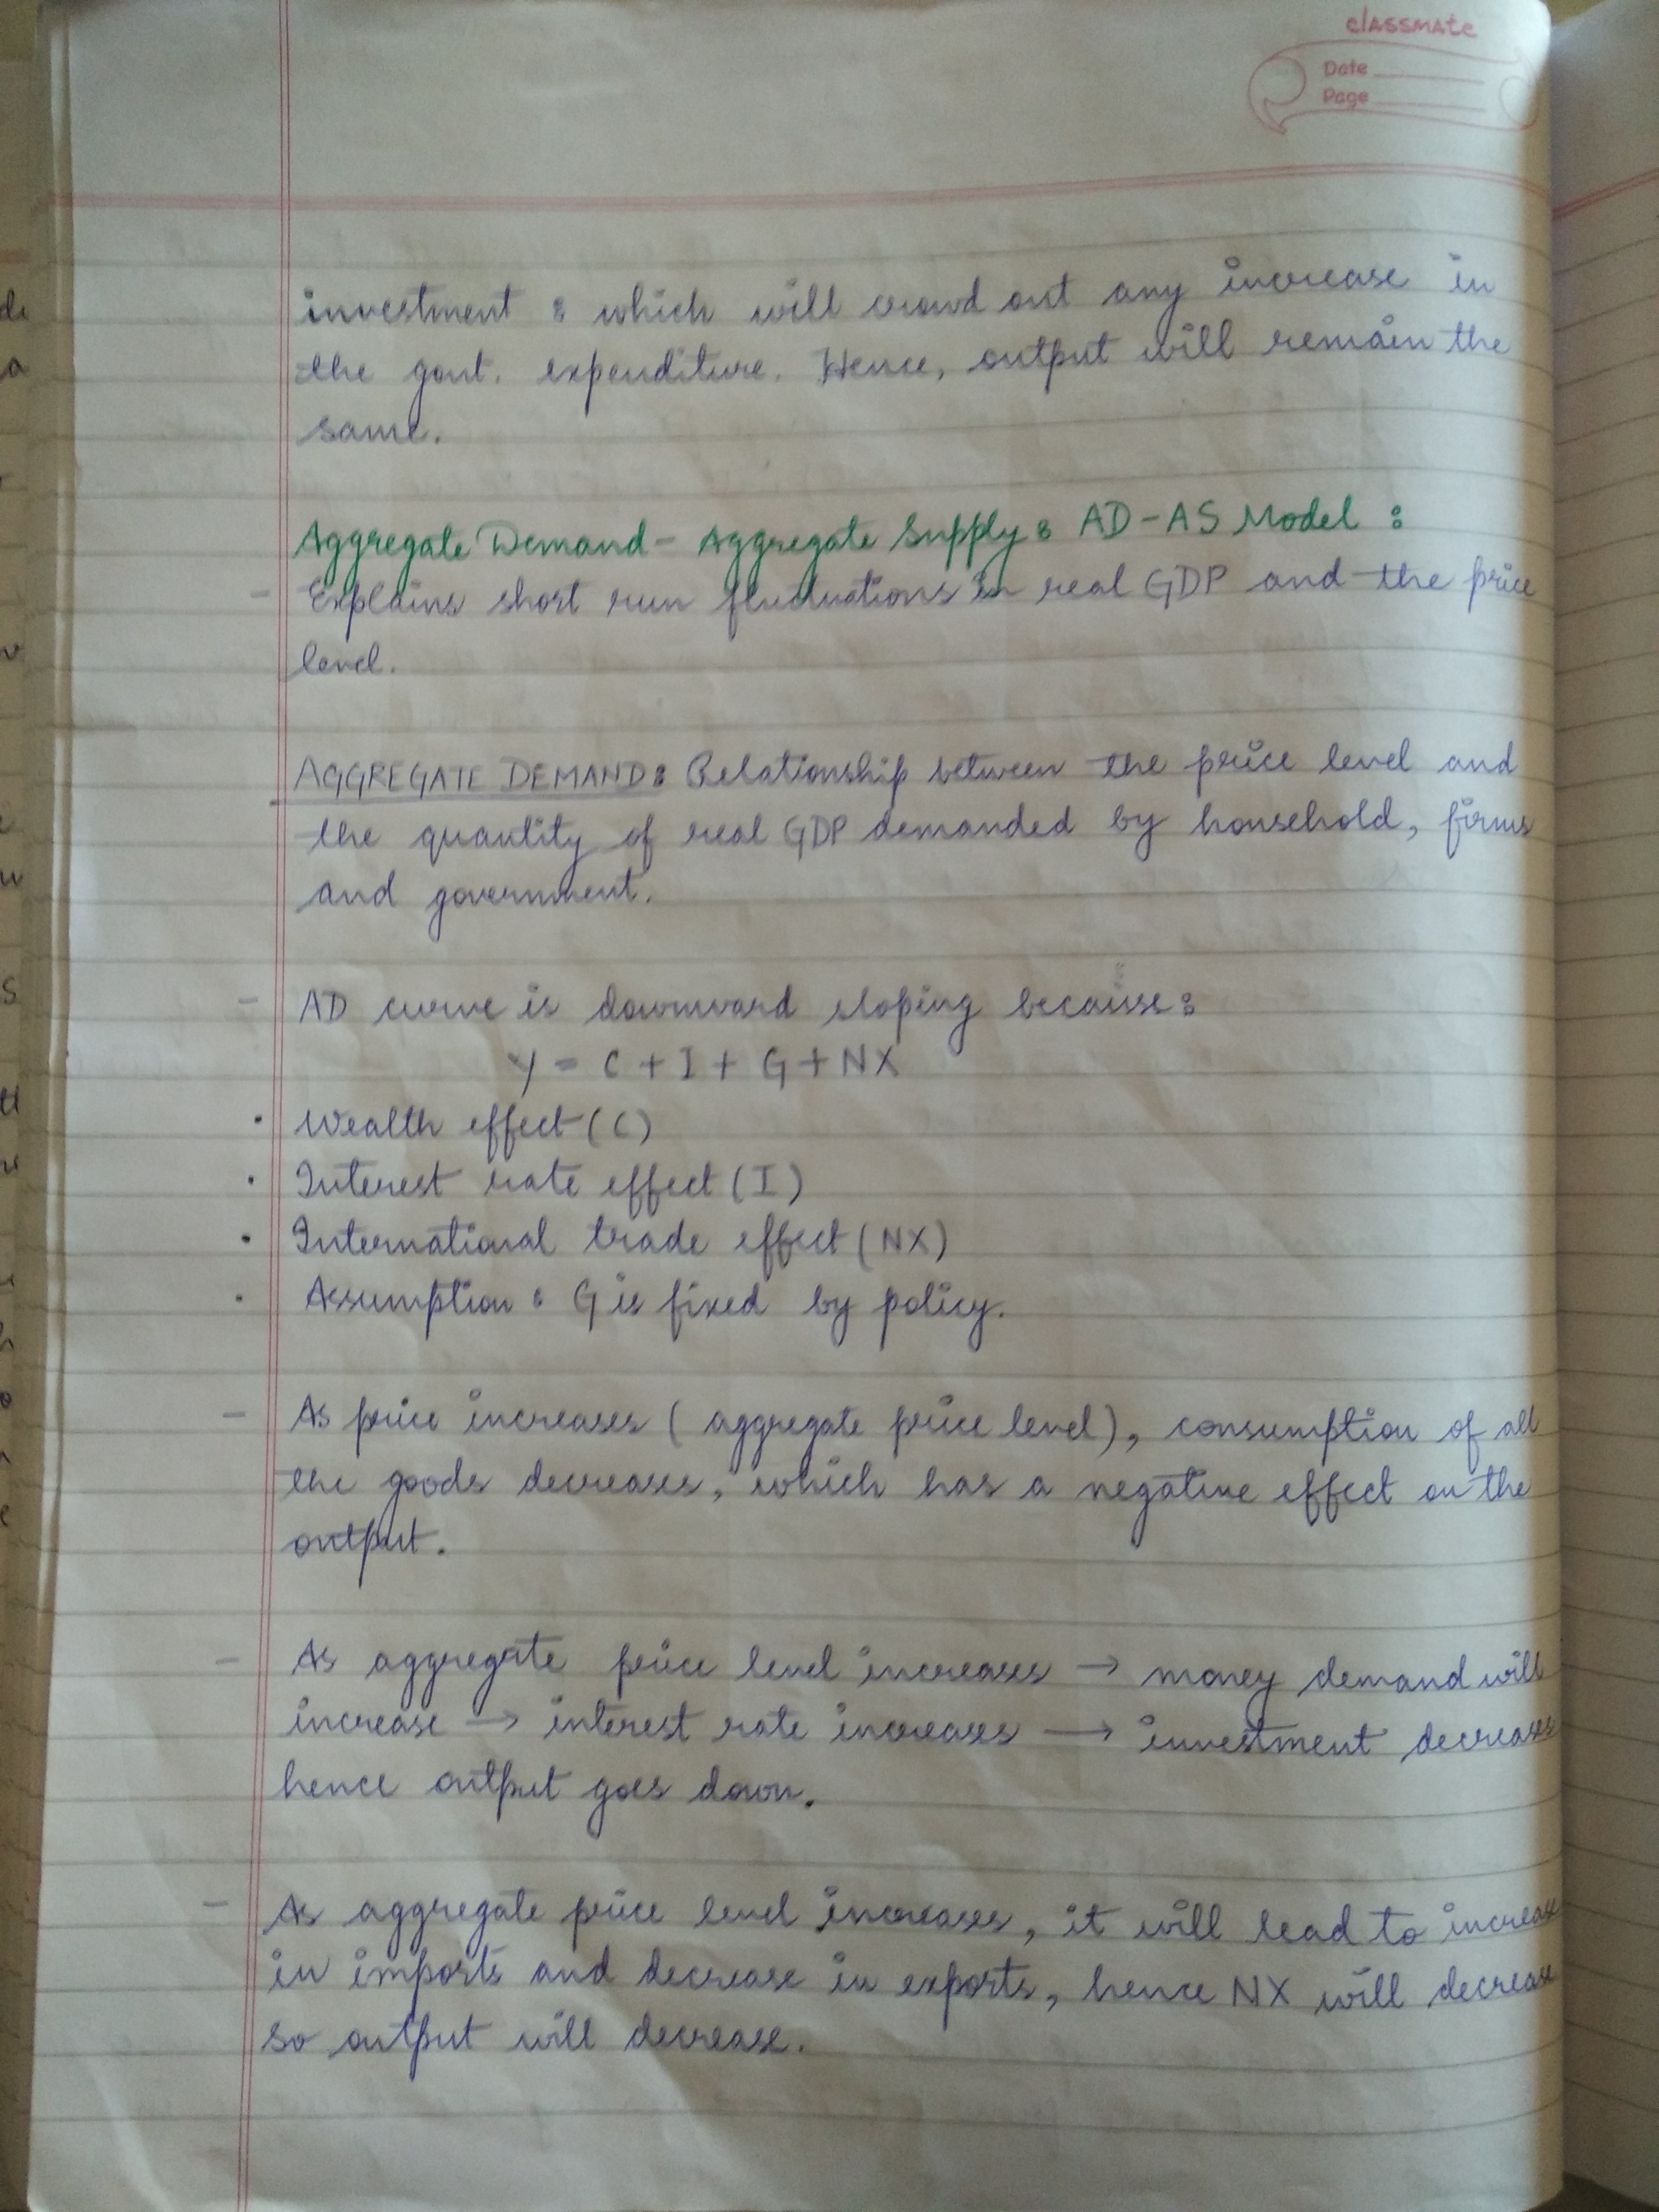 classmate
Date
Page
investment : which will crowd out any increase in
the govt. expenditure. Hence, output will remain the
same.
Aggregate Demand - Aggregate Supply : AD-AS Model :
- Explains short run fluctuations in real GDP and the price
level.
AGGREGATE DEMAND : Relationship between the price level and
the quantity of real GDP demanded by household, firms
and government.
- AD curve is downward sloping because :
Y = C + I + G + NX
• Wealth effect (C)
• Interest rate effect (I)
• International trade effect (NX)
• Assumption : G is fixed by policy.
- As price increases (aggregate price level), consumption of all
the goods decreases, which has a negative effect on the
output.
- As aggregate price level increases → money demand will
increase → interest rate increases → investment decreases
hence output goes down.
- As aggregate price level increases, it will lead to increase
in imports and decrease in exports, hence NX will decrease
so output will decrease.